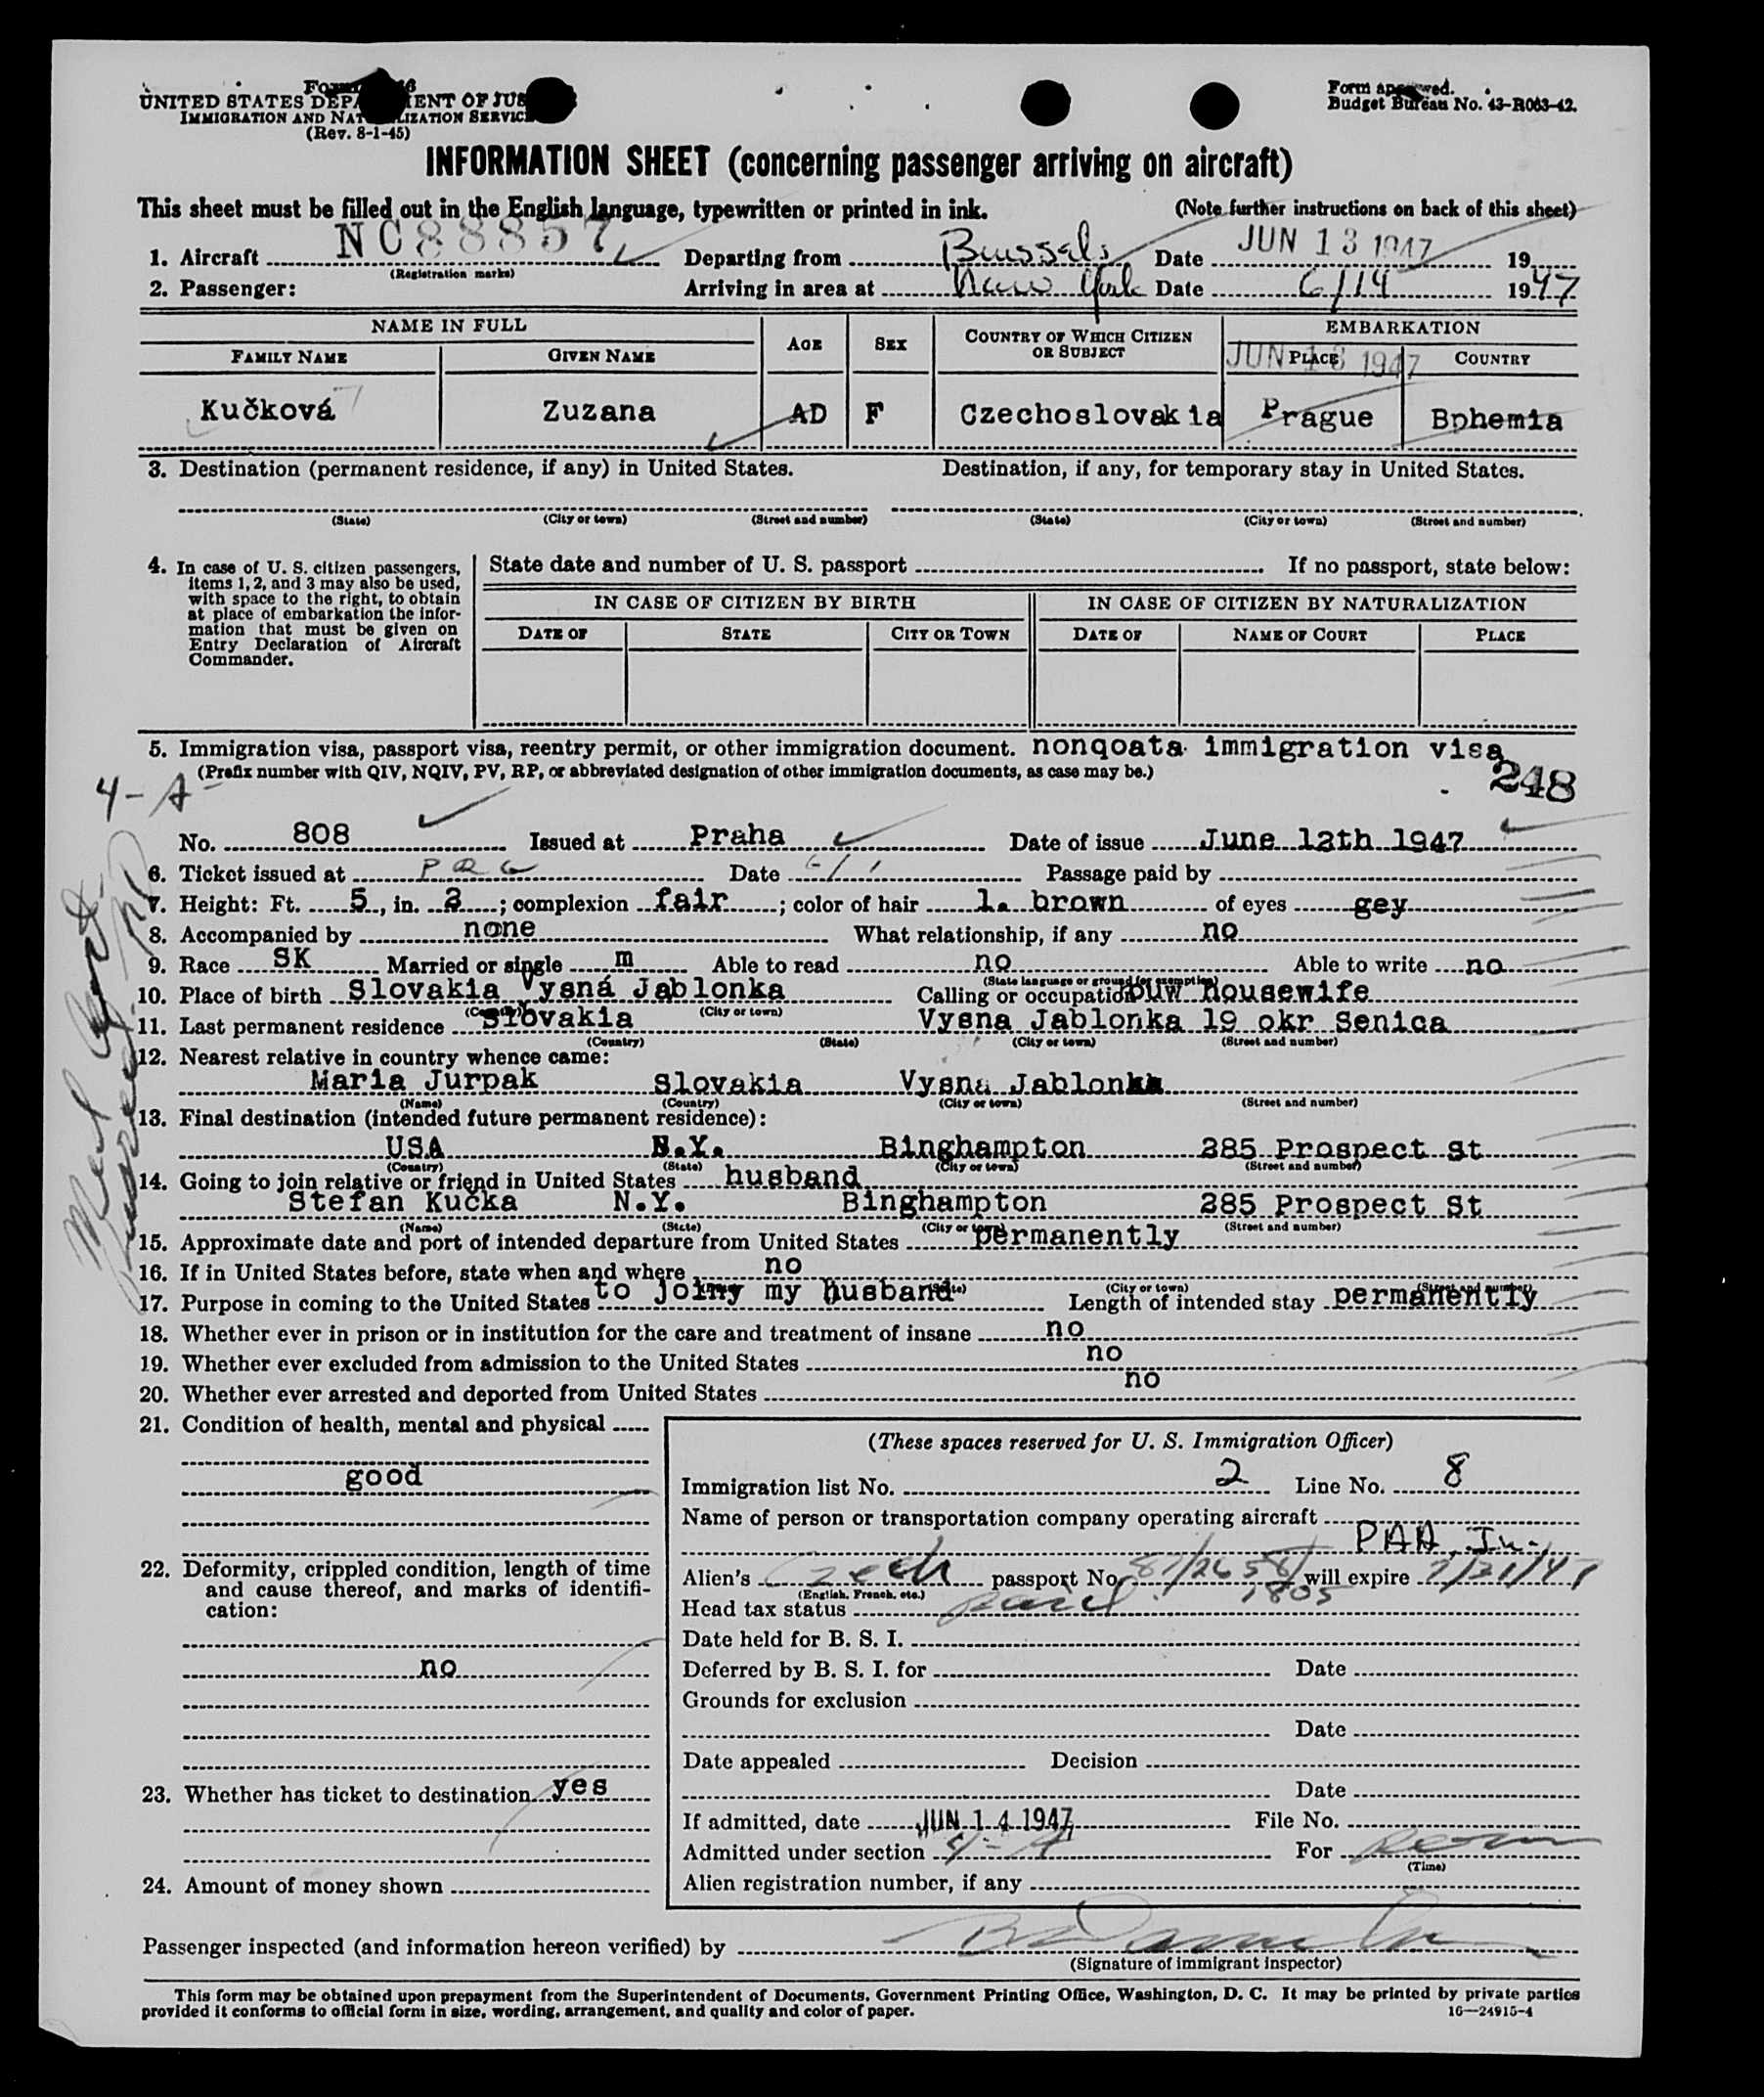 UNITED STATES DEPA ENT OF JUS
IMMIGRATION AND NAT LIZATION SERVIC
(Rev. 8-1-45)
Form approved.
Budget Bureau No. 43-R063-42.
INFORMATION SHEET (concerning passenger arriving on aircraft)
This sheet must be filled out in the English language, typewritten or printed in ink. (Note further instructions on back of this sheet)
1. Aircraft NC88857 Departing from Brussels Date JUN 13 1947 19
(Registration marks)
2. Passenger: Arriving in area at New York Date 6/14 1947
NAME IN FULL AGE SEX COUNTRY OF WHICH CITIZEN OR SUBJECT EMBARKATION
FAMILY NAME GIVEN NAME PLACE COUNTRY
JUN 13 1947
Kučková Zuzana AD F Czechoslovakia Prague Bphemia
3. Destination (permanent residence, if any) in United States. Destination, if any, for temporary stay in United States.
(State) (City or town) (Street and number) (State) (City or town) (Street and number)
4. In case of U. S. citizen passengers, items 1, 2, and 3 may also be used, with space to the right, to obtain at place of embarkation the information that must be given on Entry Declaration of Aircraft Commander.
State date and number of U. S. passport If no passport, state below:
IN CASE OF CITIZEN BY BIRTH IN CASE OF CITIZEN BY NATURALIZATION
DATE OF STATE CITY OR TOWN DATE OF NAME OF COURT PLACE
5. Immigration visa, passport visa, reentry permit, or other immigration document. nonqoata immigration visa
(Prefix number with QIV, NQIV, PV, RP, or abbreviated designation of other immigration documents, as case may be.)
248
4-A
No. 808 Issued at Praha Date of issue June 12th 1947
6. Ticket issued at PRG Date 6/1 Passage paid by
7. Height: Ft. 5, in. 2; complexion fair; color of hair l. brown of eyes gey
8. Accompanied by none What relationship, if any no
9. Race SK Married or single m Able to read no Able to write no
(State language or ground for exemption)
10. Place of birth Slovakia Vysná Jablonka Calling or occupation OUW housewife
(Country) (City or town)
11. Last permanent residence Slovakia Vysna Jablonka 19 okr Senica
(Country) (State) (City or town) (Street and number)
12. Nearest relative in country whence came:
Maria Jurpak Slovakia Vysna Jablonka
(Name) (Country) (City or town) (Street and number)
13. Final destination (intended future permanent residence):
USA N.Y. Binghampton 285 Prospect St
(Country) (State) (City or town) (Street and number)
14. Going to join relative or friend in United States husband
Stefan Kučka N.Y. Binghampton 285 Prospect St
(Name) (State) (City or town) (Street and number)
15. Approximate date and port of intended departure from United States permanently
16. If in United States before, state when and where no
(State) (City or town) (Street and number)
17. Purpose in coming to the United States to joiny my husband Length of intended stay permanently
18. Whether ever in prison or in institution for the care and treatment of insane no
19. Whether ever excluded from admission to the United States no
20. Whether ever arrested and deported from United States no
21. Condition of health, mental and physical
good
22. Deformity, crippled condition, length of time and cause thereof, and marks of identification:
no
23. Whether has ticket to destination yes
24. Amount of money shown
(These spaces reserved for U. S. Immigration Officer)
Immigration list No. 2 Line No. 8
Name of person or transportation company operating aircraft
PAA, In.
Alien's Czech passport No. will expire
(English, French, etc.)
Head tax status paid 1805
Date held for B. S. I.
Deferred by B. S. I. for Date
Grounds for exclusion
Date
Date appealed Decision
Date
If admitted, date JUN 14 1947 File No.
Admitted under section 4-A For
(Time)
Alien registration number, if any
Passenger inspected (and information hereon verified) by
(Signature of immigrant inspector)
This form may be obtained upon prepayment from the Superintendent of Documents, Government Printing Office, Washington, D. C. It may be printed by private parties
provided it conforms to official form in size, wording, arrangement, and quality and color of paper. 16—24915-4